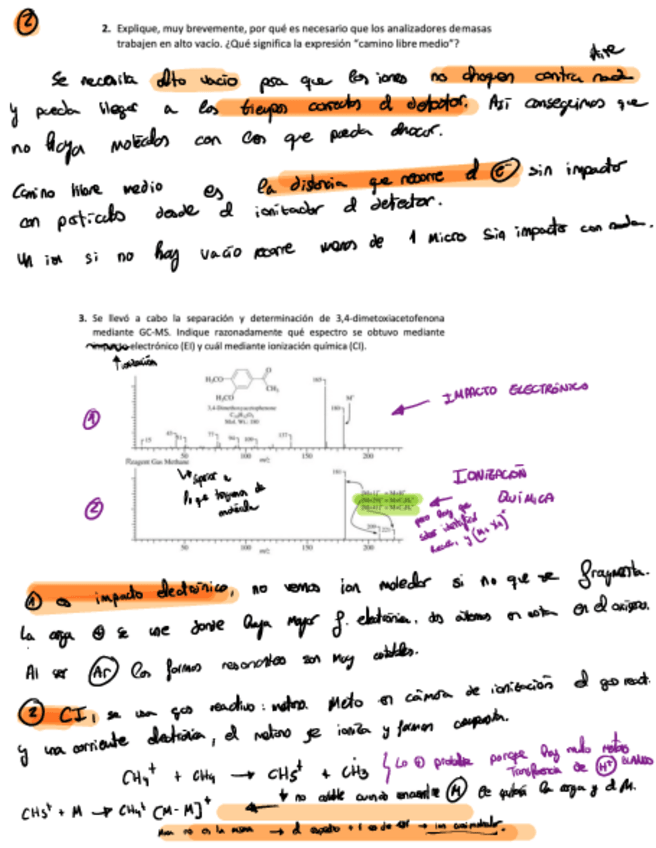 2
2. Explique, muy brevemente, por qué es necesario que los analizadores demasas
trabajen en alto vacío. ¿Qué significa la expresión "camino libre medio"?
Aire
Se necesita alto vacío para que los iones no choquen contra nada
y pueda llegar a los tiempos correctos al detector. Así conseguimos que
no haya moléculas con los que pueda chocar.
Camino libre medio es la distancia que recorre el e⁻ sin impacto
con partículas desde el ionizador al detector.
Un ion si no hay vacío recorre menos de 1 micro sin impactar con nada.
3. Se llevó a cabo la separación y determinación de 3,4-dimetoxiacetofenona
mediante GC-MS. Indique razonadamente qué espectro se obtuvo mediante
electrónico (EI) y cuál mediante ionización química (CI).
↑ ionización
1
H₃CO
O
CH₃
H₃CO
3,4-Dimethoxyacetophenone
C₁₀H₁₂O₃
Mol. Wt.: 180
165
M⁺
180
15 43 51 77 94 109 137
50 100 150 200
m/z
← IMPACTO ELECTRÓNICO
Reagent Gas Methane
2
181
[M+1]⁺ = M+H⁺
[M+29]⁺ = M+C₂H₅⁺
[M+41]⁺ = M+C₃H₅⁺
209
221
50 100 150 200
m/z
← IONIZACIÓN
QUÍMICA
pero hay que
saber identificar
1 es impacto electrónico, no vemos ion molecular si no que se fragmenta.
La carga ⊕ se une donde haya mayor f. electrónica, dos átomos en están en el oxígeno.
Al ser Ar las formas resonantes son muy estables.
2 CI, se usa gas reactivo: metano. Meto en cámara de ionización el gas react.
y una corriente electrónica, el metano se ioniza y forman
CH₄⁺ + CH₄ → CH₅⁺ + CH₃
Lo ⊕ probable porque hay mucho metano
Transferencia de H⁺ cuando
no estable cuando encuentre M se quitará la carga y al M.
CH₅⁺ + M → CH₄⁺ [M-M]⁺